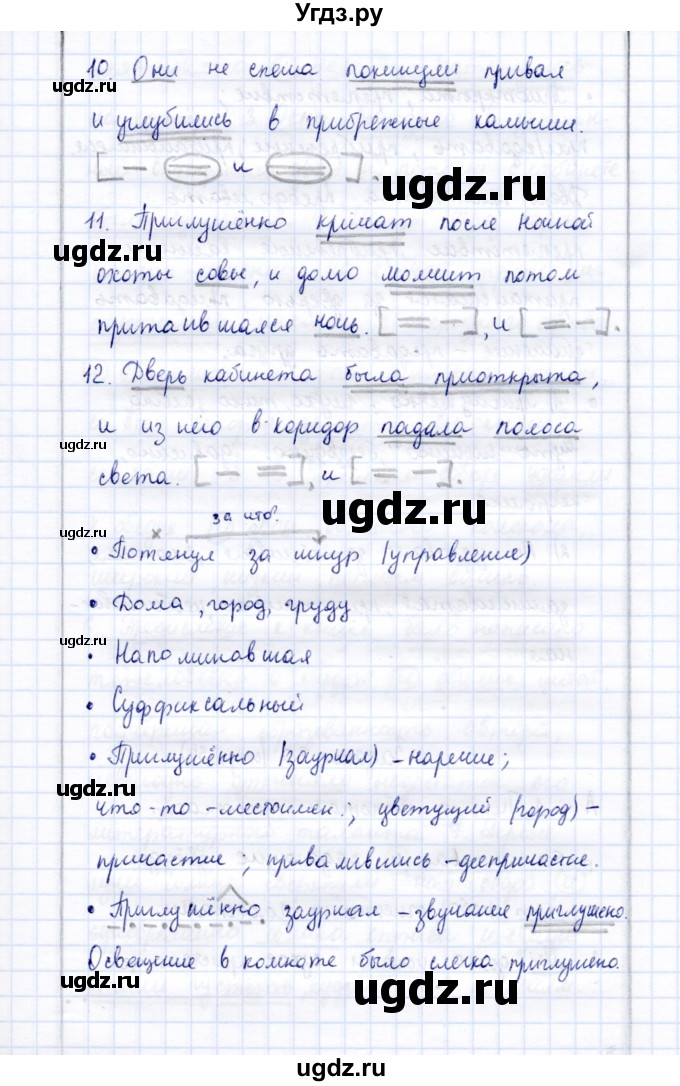 Угдз.ру
10. Они не спеша покинули привал
и углубились в прибрежные камыши.
[— = и =].
ugdz.ru
11. Приглушённо кричат после ночной
охоты совы, и долго молчит потом
притаившаяся ночь. [= —], и [= —].
ugdz.ru
12. Дверь кабинета была приоткрыта,
и из него в коридор падала полоса
ugdz.ru
света. [— =], и [= —].
ugdz.ru
за что?
ugdz.ru
х
• Потянул за шнур (управление)
• Дома, город, груду
ugdz.ru
• Напоминавшая
• Суффиксальный
ugdz.ru
• Приглушённо (заурчал) – наречие;
ugdz.ru
что-то – местоимен.; цветущий (город) –
причастие; привалившись – деепричастие.
ugdz.ru
• Приглушённо заурчал – звучание приглушено.
Освещение в комнате было слегка приглушено.
ugdz.ru
ugdz.ru